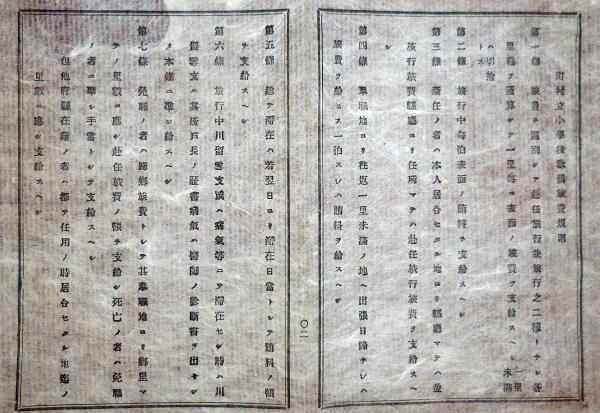 町村立小學校敎員旅費規則
第一條 旅費ヲ區別シテ赴任旅行並旅行之二種トナシ各
里程ヲ通算シテ一里每ニ表面ノ旅費ヲ支給スヘシ一里未滿
ハ切捨
トス
第二條 旅行中每泊表面ノ賄料ヲ支給スヘシ
第三條 新任ノ者ハ本人居合セタル地ヨリ縣廳マテハ並
旅行旅費縣廳ヨリ任所マテハ赴任旅行旅費ヲ支給スヘ
シ
第四條 奉職地ヨリ往返一里未滿ノ地ヘ出張日歸ナレハ
旅費ヲ給セス一泊スレハ賄料ヲ給スヘシ
〇二
第五條 總テ滯在ハ着翌日ヨリ滯在日當トシテ賄料ノ額
ヲ支給スヘシ
第六條 旅行中川留雪支或ハ病氣等ニテ滯在セシ時ハ川
留雪支ハ其所戶長ノ証書病氣ハ醫師ノ診斷書ヲ出サシ
メ本條ニ準シ給スヘシ
第七條 免職ノ者ハ歸鄕旅費トシテ其奉職地ヨリ鄕里マ
テノ里數ニ應シ赴任旅費ノ額ヲ支給シ死亡ノ者ハ免職
ノ者ニ準シ手當トシテ支給スヘシ
但他府縣在籍ノ者ハ都テ任用ノ時居合セタル地迄ノ
里數ニ應シ支給スヘシ